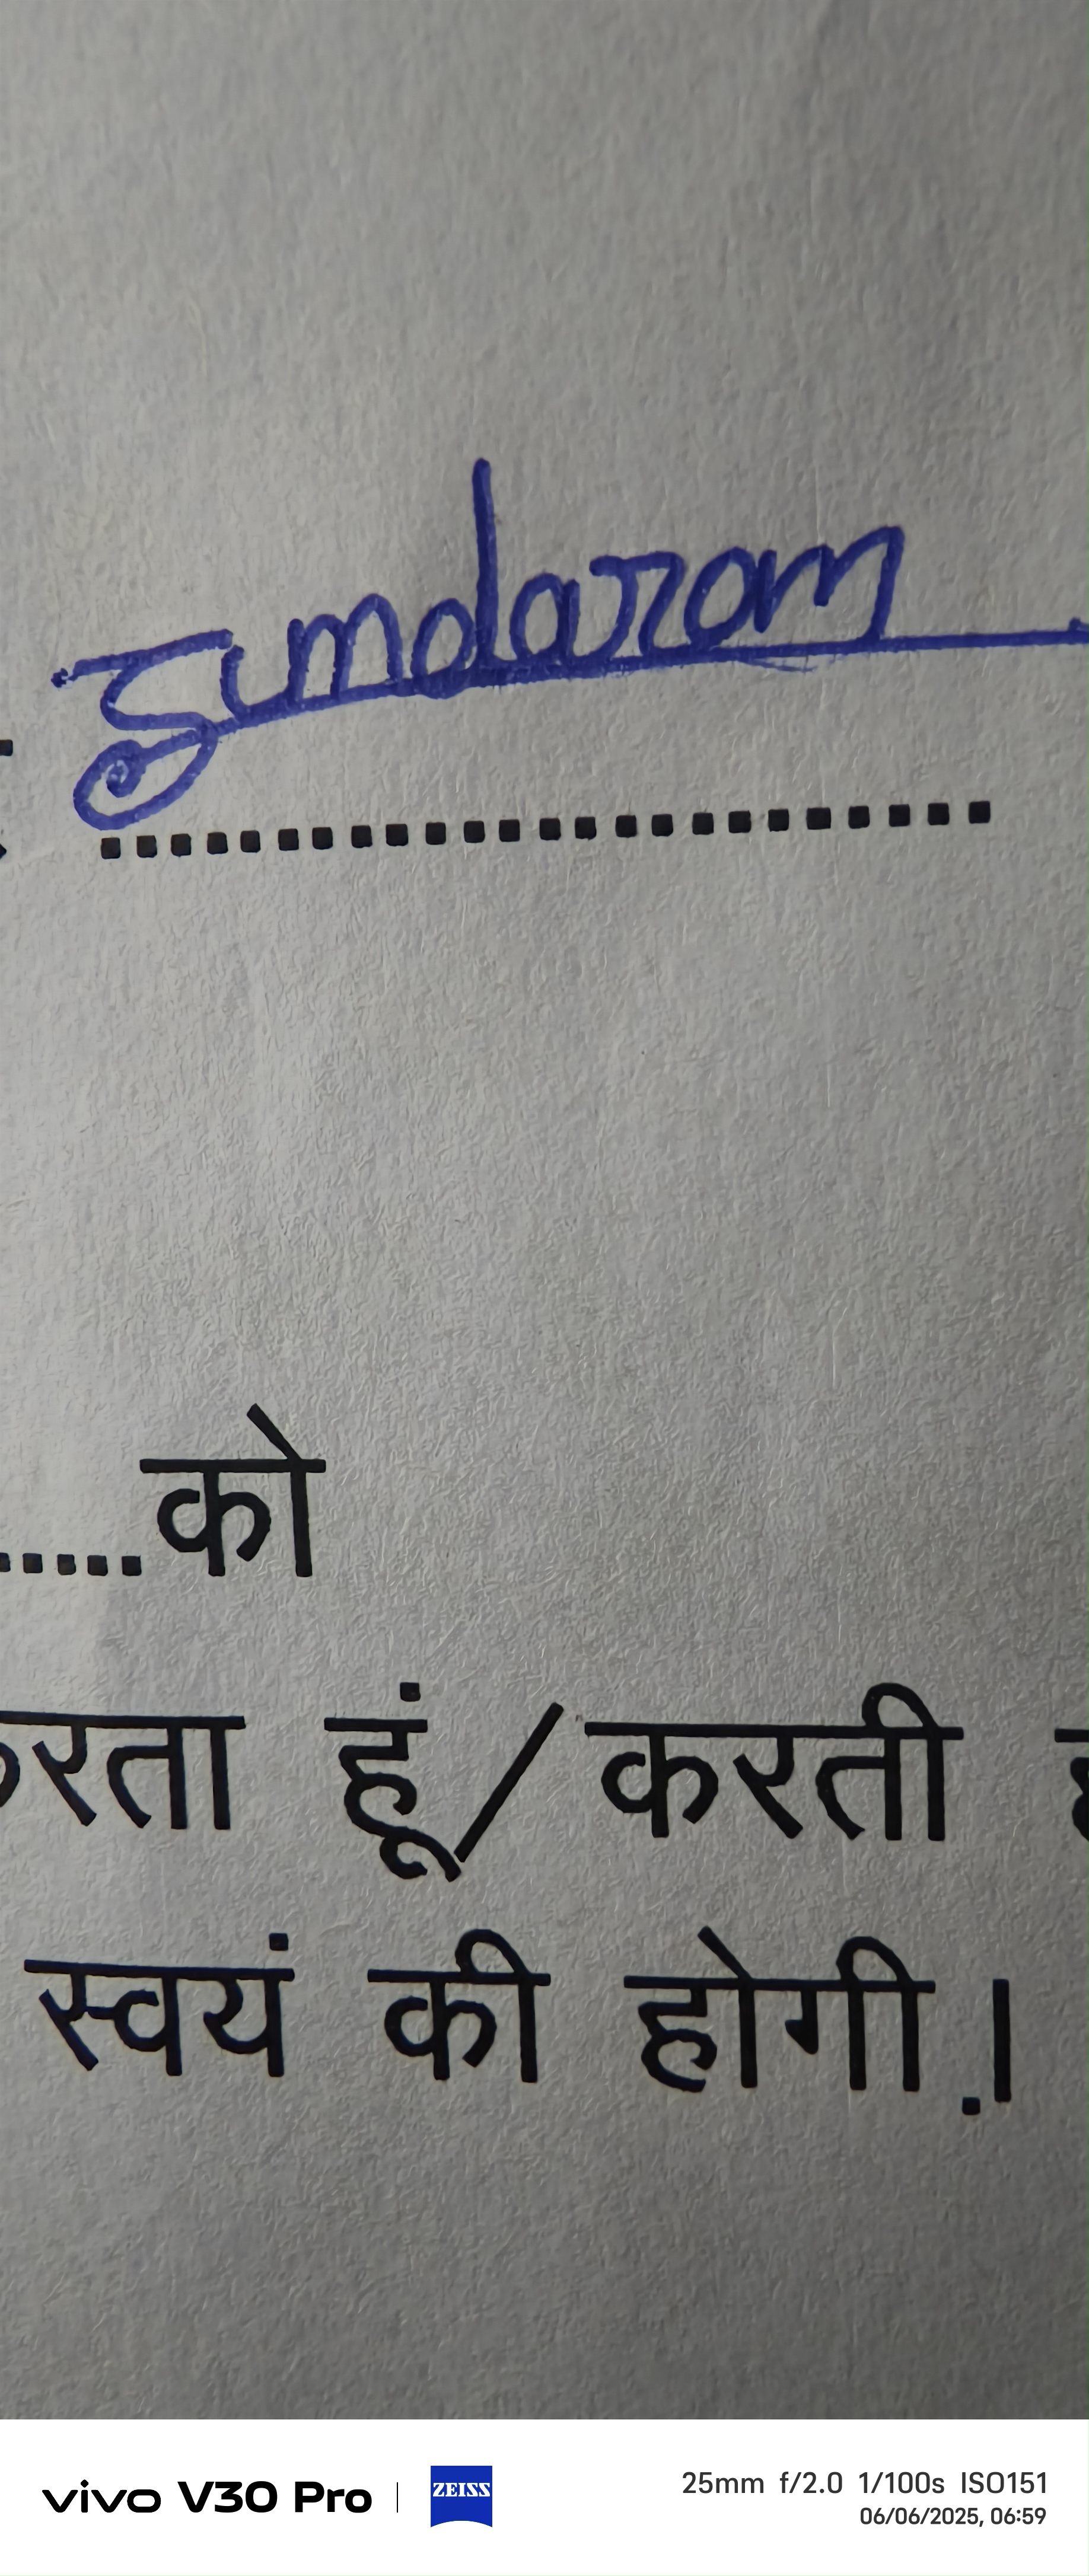 Sundaram
को
करता हूं/करती
स्वयं की होगी.।
vivo V30 Pro | ZEISS 25mm f/2.0 1/100s ISO151
06/06/2025, 06:59